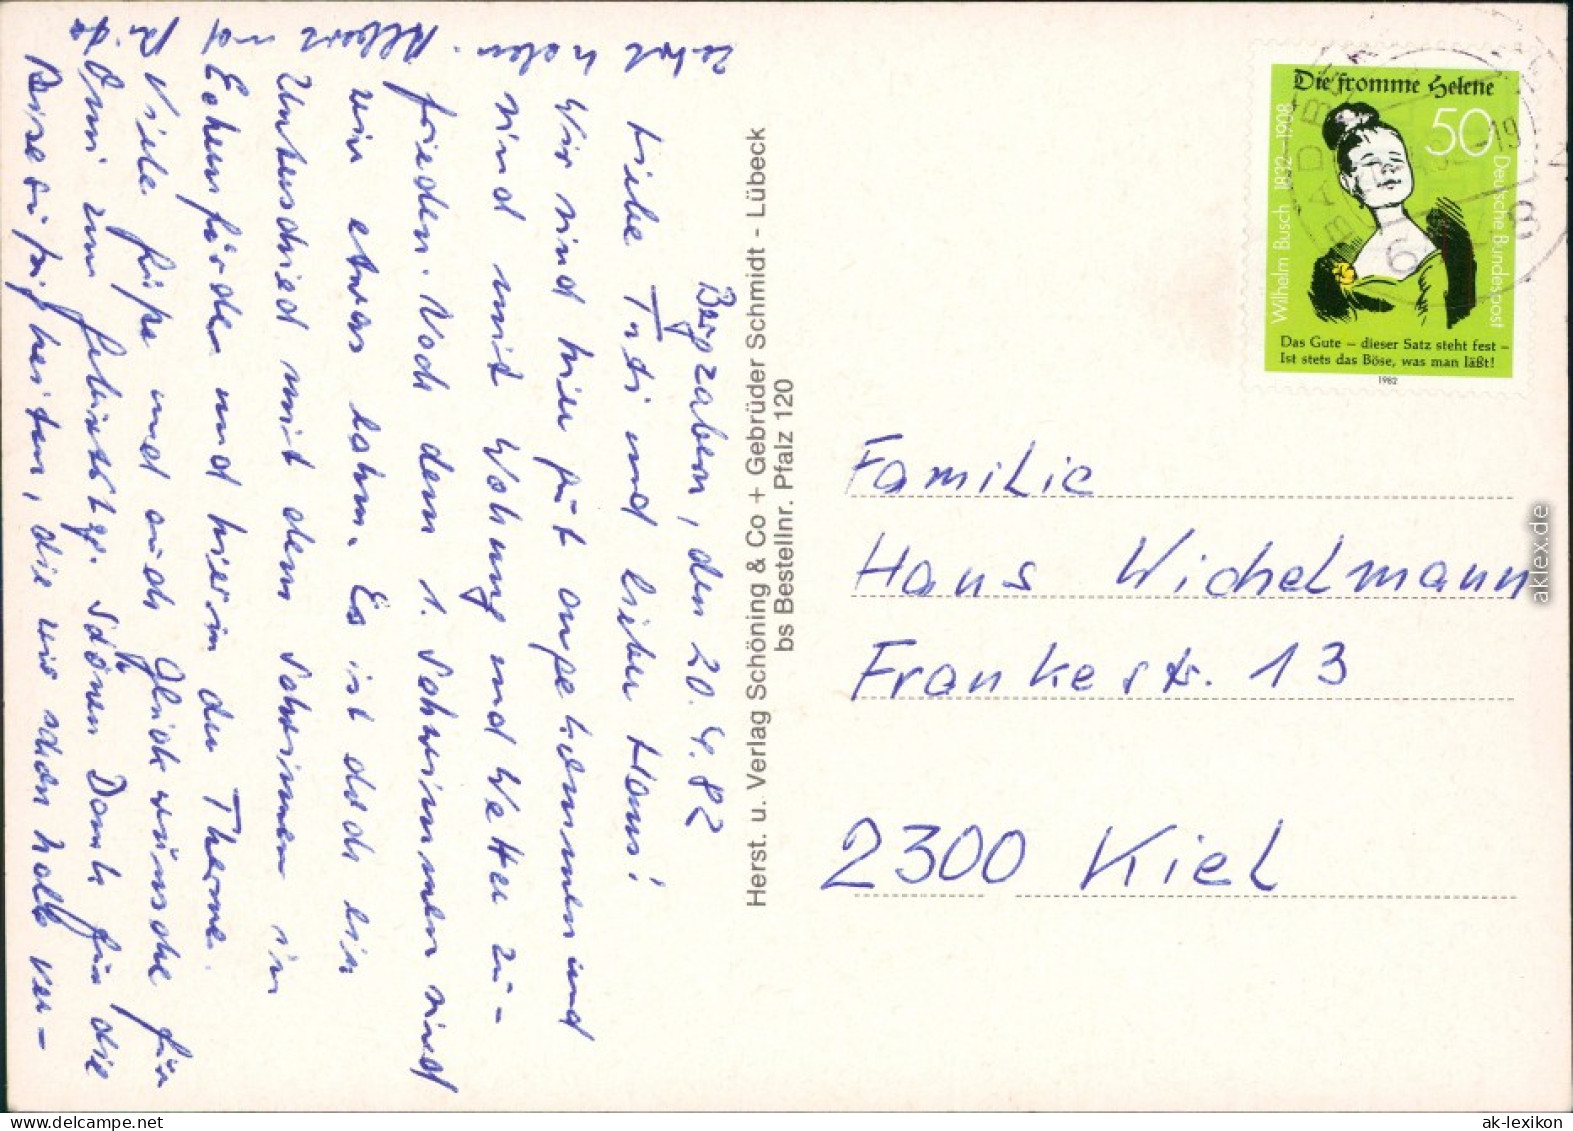 Bergzabern, den 20.4.82
Liebe Tuti und lieber Hans!
Wir sind hier gut angekommen und
sind mit Wohnung und Wetter zu-
frieden. Nach dem 1. Schwimmen sind
wir etwas lahm. Es ist doch ein
Unterschied mit dem Schwimmen in
Eckernförde und hier in der Therme.
Viele Grüße und auch Glückwünsche für
Omi zum Geburtstg. Schönen Dank für die
Reisesüßigkeiten, die wir schon halb ver-
zehrt haben. Albert und
Herst. u. Verlag Schöning & Co + Gebrüder Schmidt - Lübeck
bs Bestellnr. Pfalz 120
Die fromme Helene
50
Wilhelm Busch 1832–1908
Deutsche Bundespost
Das Gute – dieser Satz steht fest –
Ist stets das Böse, was man läßt!
1982
Familie
Hans Wichelmann
Frankestr. 13
2300 Kiel
aklex.de
ak-lexikon